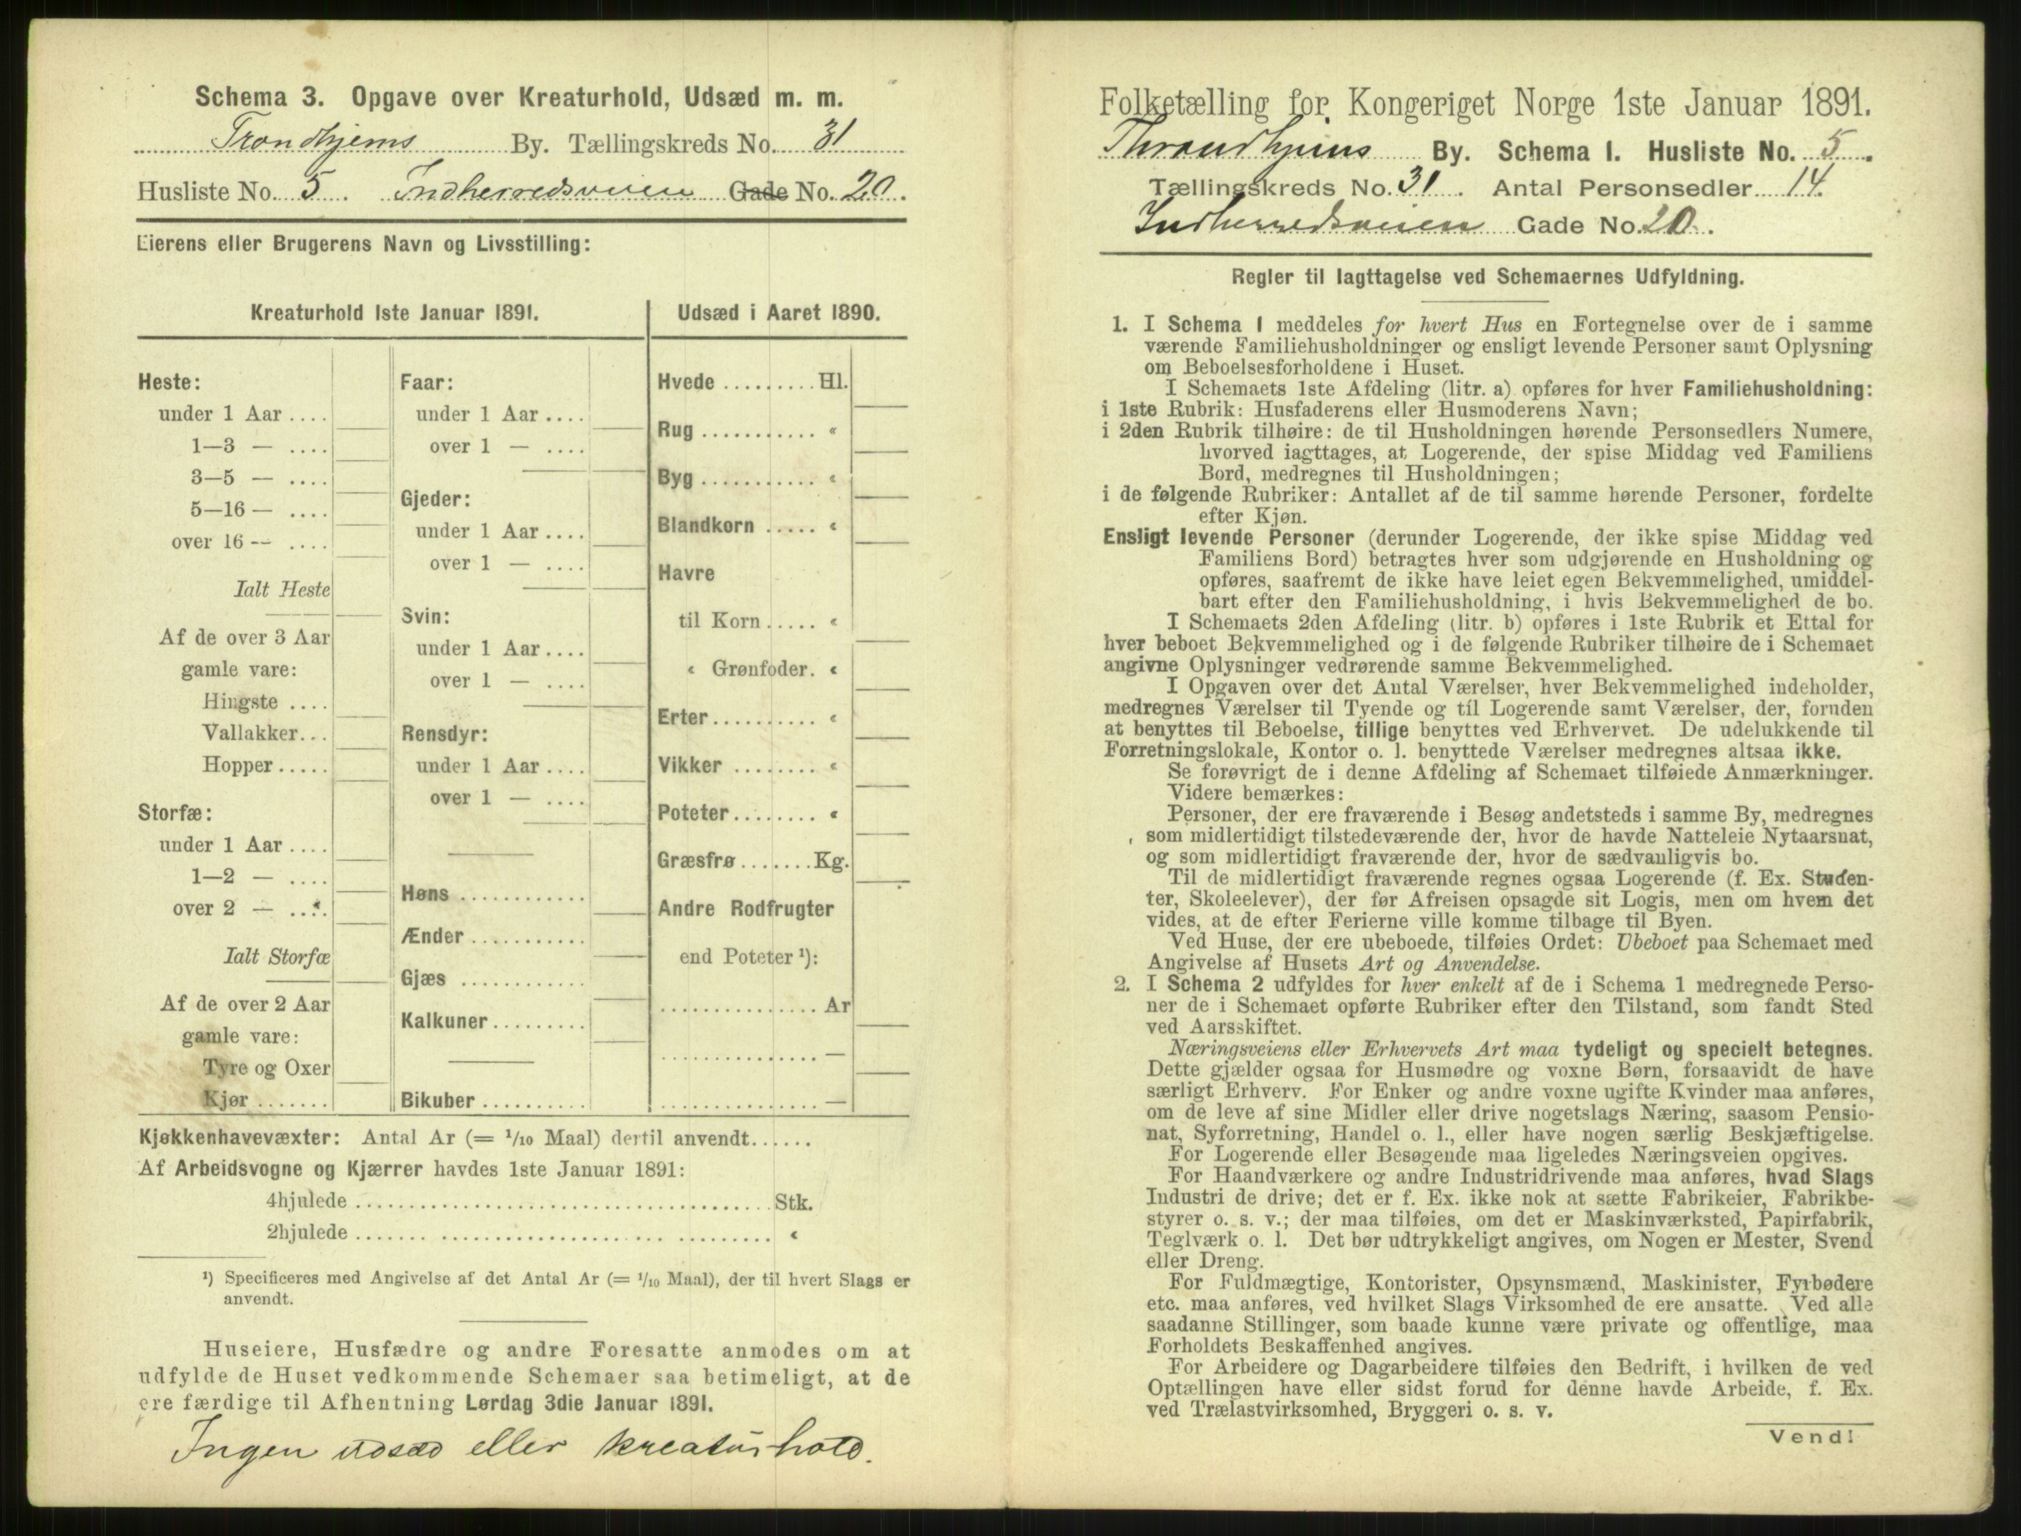 Schema 3. Opgave over Kreaturhold, Udsæd m. m.
Trondhjems By. Tællingskreds No. 31
Husliste No. 5. Indherredsveien Gade No. 20.
Eierens eller Brugerens Navn og Livsstilling:
Kreaturhold 1ste Januar 1891.
Heste:
under 1 Aar ....
1—3 — ....
3—5 — ....
5—16 — ....
over 16 — ....
Ialt Heste
Af de over 3 Aar
gamle vare:
Hingste ....
Vallakker...
Hopper.....
Storfæ:
under 1 Aar ....
1—2 — ....
over 2 — ....
Ialt Storfæ
Af de over 2 Aar
gamle vare:
Tyre og Oxer
Kjør .......
Faar:
under 1 Aar ....
over 1 — ....
Gjeder:
under 1 Aar ....
over 1 — ....
Svin:
under 1 Aar ....
over 1 — ....
Rensdyr:
under 1 Aar ....
over 1 — ....
Høns ............
Ænder ...........
Gjæs ............
Kalkuner.........
Bikuber ..........
Udsæd i Aaret 1890.
Hvede ......... Hl.
Rug ........... "
Byg ........... "
Blandkorn ..... "
Havre
til Korn ..... "
" Grønfoder. "
Erter .......... "
Vikker ........ "
Poteter........ "
Græsfrø ....... Kg.
Andre Rodfrugter
end Poteter ¹):
............... Ar
............... —
............... —
Kjøkkenhavevæxter: Antal Ar (= 1/10 Maal) dertil anvendt......
Af Arbeidsvogne og Kjærrer havdes 1ste Januar 1891:
4hjulede ........................................ Stk.
2hjulede ........................................ "
¹) Specificeres med Angivelse af det Antal Ar (= 1/10 Maal), der til hvert Slags er
anvendt.
Huseiere, Husfædre og andre Foresatte anmodes om at
udfylde de Huset vedkommende Schemaer saa betimeligt, at de
ere færdige til Afhentning Lørdag 3die Januar 1891.
Ingen udsæd eller kreaturhold.
Folketælling for Kongeriget Norge 1ste Januar 1891.
Throndhjems By. Schema I. Husliste No. 5.
Tællingskreds No. 31. Antal Personsedler 14.
Indherredsveien Gade No. 20.
Regler til Iagttagelse ved Schemaernes Udfyldning.
1. I Schema 1 meddeles for hvert Hus en Fortegnelse over de i samme
værende Familiehusholdninger og ensligt levende Personer samt Oplysning
om Beboelsesforholdene i Huset.
I Schemaets 1ste Afdeling (litr. a) opføres for hver Familiehusholdning:
i 1ste Rubrik: Husfaderens eller Husmoderens Navn;
i 2den Rubrik tilhøire: de til Husholdningen hørende Personsedlers Numere,
hvorved iagttages, at Logerende, der spise Middag ved Familiens
Bord, medregnes til Husholdningen;
i de følgende Rubriker: Antallet af de til samme hørende Personer, fordelte
efter Kjøn.
Ensligt levende Personer (derunder Logerende, der ikke spise Middag ved
Familiens Bord) betragtes hver som udgjørende en Husholdning og
opføres, saafremt de ikke have leiet egen Bekvemmelighed, umiddel-
bart efter den Familiehusholdning, i hvis Bekvemmelighed de bo.
I Schemaets 2den Afdeling (litr. b) opføres i 1ste Rubrik et Ettal for
hver beboet Bekvemmelighed og i de følgende Rubriker tilhøire de i Schemaet
angivne Oplysninger vedrørende samme Bekvemmelighed.
I Opgaven over det Antal Værelser, hver Bekvemmelighed indeholder,
medregnes Værelser til Tyende og til Logerende samt Værelser, der, foruden
at benyttes til Beboelse, tillige benyttes ved Erhvervet. De udelukkende til
Forretningslokale, Kontor o. l. benyttede Værelser medregnes altsaa ikke.
Se forøvrigt de i denne Afdeling af Schemaet tilføiede Anmærkninger.
Videre bemærkes:
Personer, der ere fraværende i Besøg andetsteds i samme By, medregnes
som midlertidigt tilstedeværende der, hvor de havde Natteleie Nytaarsnat,
og som midlertidigt fraværende der, hvor de sædvanligvis bo.
Til de midlertidigt fraværende regnes ogsaa Logerende (f. Ex. Studen-
ter, Skoleelever), der før Afreisen opsagde sit Logis, men om hvem det
vides, at de efter Ferierne ville komme tilbage til Byen.
Ved Huse, der ere ubeboede, tilføies Ordet: Ubeboet paa Schemaet med
Angivelse af Husets Art og Anvendelse.
2. I Schema 2 udfyldes for hver enkelt af de i Schema 1 medregnede Perso-
ner de i Schemaet opførte Rubriker efter den Tilstand, som fandt Sted
ved Aarsskiftet.
Næringsveiens eller Erhvervets Art maa tydeligt og specielt betegnes.
Dette gjælder ogsaa for Husmødre og voxne Børn, forsaavidt de have
særligt Erhverv. For Enker og andre voxne ugifte Kvinder maa anføres,
om de leve af sine Midler eller drive nogetslags Næring, saasom Pensio-
nat, Syforretning, Handel o. l., eller have nogen særlig Beskjæftigelse.
For Logerende eller Besøgende maa ligeledes Næringsveien opgives.
For Haandværkere og andre Industridrivende maa anføres, hvad Slags
Industri de drive; det er f. Ex. ikke nok at sætte Fabrikeier, Fabrikbe-
styrer o. s. v.; der maa tilføies, om det er Maskinværksted, Papirfabrik,
Teglværk o. l. Det bør udtrykkeligt angives, om Nogen er Mester, Svend
eller Dreng.
For Fuldmægtige, Kontorister, Opsynsmænd, Maskinister, Fyrbødere
etc. maa anføres, ved hvilket Slags Virksomhed de ere ansatte. Ved alle
saadanne Stillinger, som baade kunne være private og offentlige, maa
Forholdets Beskaffenhed angives.
For Arbeidere og Dagarbeidere tilføies den Bedrift, i hvilken de ved
Optællingen have eller sidst forud for denne havde Arbeide, f. Ex.
ved Trælastvirksomhed, Bryggeri o. s. v.
Vend!